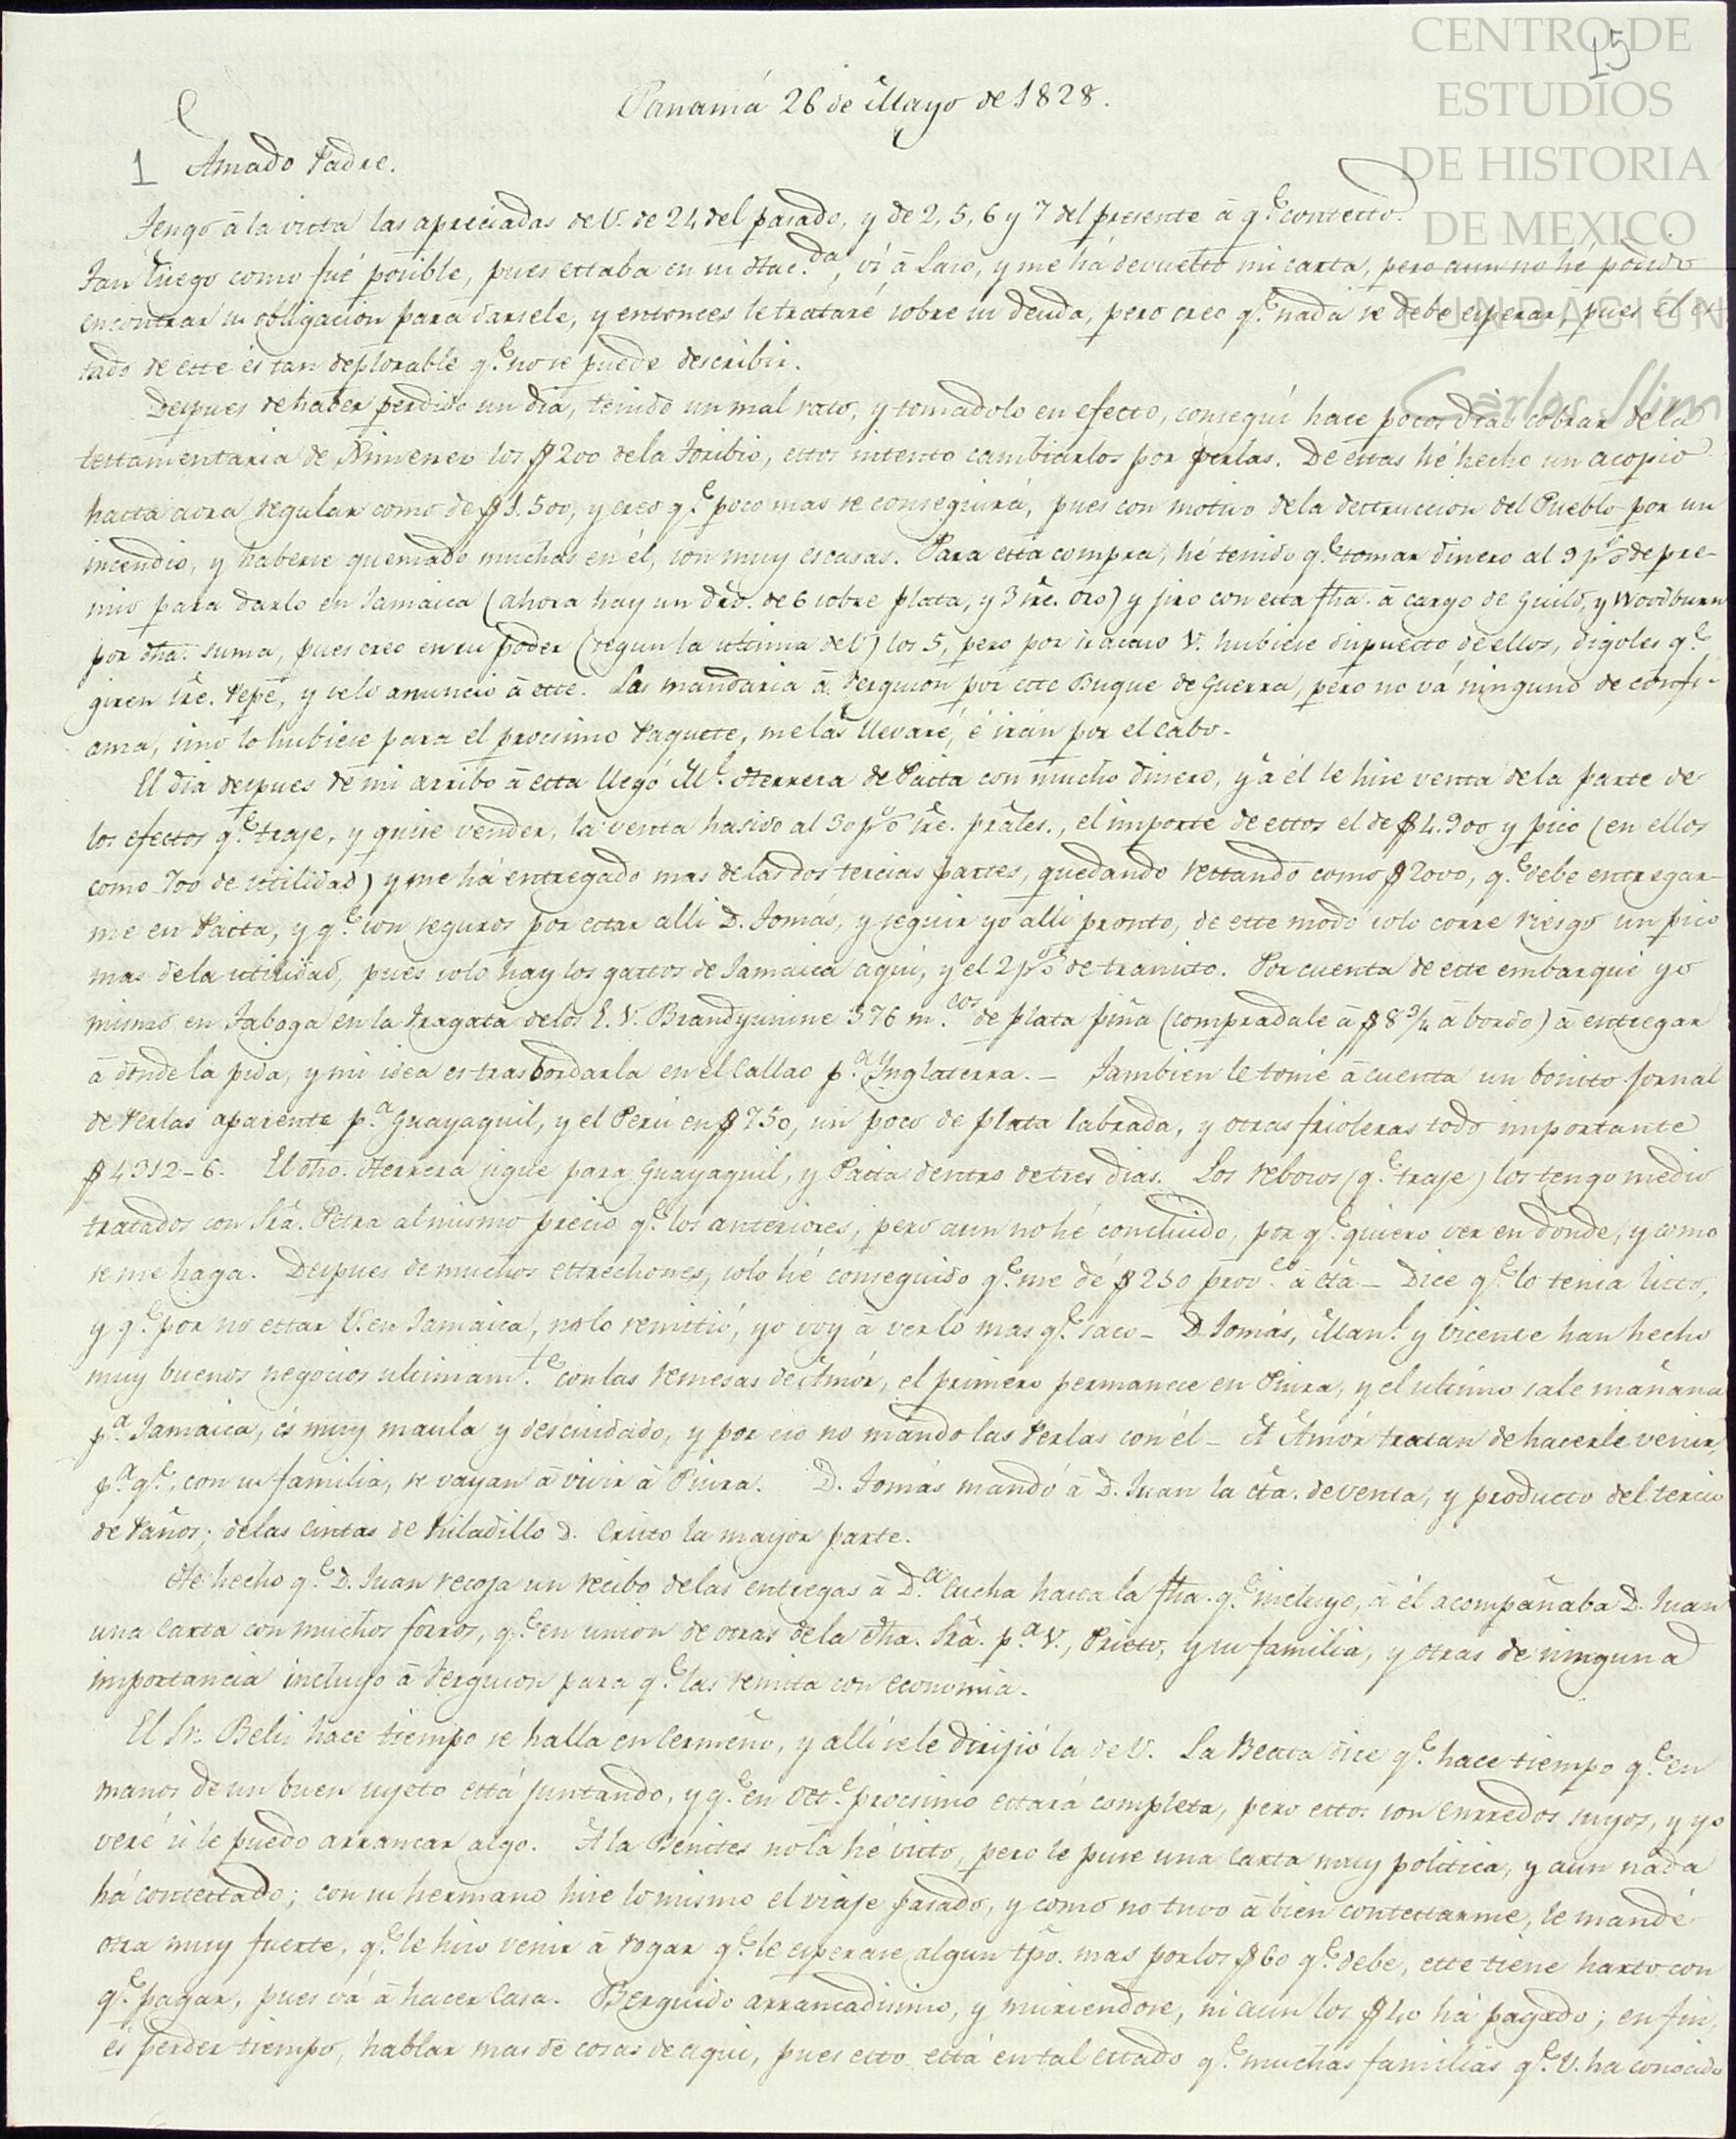 CENTRO DE
ESTUDIOS
DE HISTORIA
DE MEXICO
FUNDACIÓN
Carlos Slim
15
Panamá 26 de Mayo de 1828.
1 Amado Padre.
Tengo à la vista las apreciadas de V. de 24 del pasado, y de 2, 5, 6 y 7 del presente à q.e contesto.
Tan luego como fué posible, pues estaba en su Hac.da, ví à Laso, y me há devuelto mi carta, pero aun no hé podido
encontrar su obligacion para darsele, y entonces le trataré sobre su deuda, pero creo q.e nada se debe esperar, pues el es-
tado de este és tan deplorable q.e no se puede describir.
Despues de haber perdido un dia, tenido un mal rato, y tomadolo en efecto, conseguí hace pocos dias cobrar de la
testamentaria de Ximenez los $200 dela Toribio, estos intento cambiarlos por perlas. De estas hé hecho un acopio
hasta aora regular como de $1.500, y creo q.e poco mas se conseguirá, pues con motivo dela destruccion del Pueblo por un
incendio, y haberse quemado muchas en él, son muy escasas. Para esta compra, hé tenido q.e tomar dinero al 9 p% de pre-
mio para darlo en Jamaica (ahora hay un dro. de 6 sobre plata, y 3 sre. oro) y jiro con esta fha. à cargo de Guild, y Woodburn
por dha. suma, pues creo en su poder (segun la ultima de V) los 5, pero por si acaso V. hubiese dispuesto de ellos, digoles q.e
giren sre. Pepe, y selo anuncio à este. Las mandaria à Ferguson por este Buque de Guerra, pero no vá ninguno de confi-
anza, sino lo hubiese para el procsimo Paquete, me las llevaré, é irán por el cabo.
El dia despues de mi arribo à esta llegó M.l Herrera de Paita con mucho dinero, y à él le hise venta dela parte de
los efectos q.e traje, y quise vender, la venta hasido al 30 p% sre. prales., el importe de estos el de $4.900 y pico (en ellos
como 700 de utilidad) y me há entregado mas delas dos tercias partes, quedando restando como $2000, q.e debe entregar-
me en Paita, y q.e son seguros por estar alli D. Tomás, y seguir yo alli pronto, de este modo solo corre riesgo un pico
mas dela utilidad, pues solo hay los gastos de Jamaica aqui, y el 2 p% de transito. Por cuenta de este embarqué yo
mismo en Taboga en la Fragata delos E. V. Brandywine 376 m.cos de plata piña (compradale à $8 3/4 à bordo) à entregar
à donde la pida, y mi idea es trasbordarla en el Callao p.a Ynglaterra. — Tambien le tomé à cuenta un bonito jornal
de Perlas aparente p.a Guayaquil, y el Perú en $750, un poco de plata labrada, y otras frioleras todo importante
$4312-6. El dho. Herrera sigue para Guayaquil, y Paita dentro de tres dias. Los rebosos (q.e traje) los tengo medio
tratados con Sra. Petra al mismo precio q.e los anteriores, pero aun no hé concluido, por q.e quiero ver en donde, y como
se me haga. Despues de muchos estrechones, solo hé conseguido q.e me dé $250 à cta — Dice q.e lo tenia listo,
y q.e por no estar V. en Jamaica, no lo remitió, yo voy à ver lo mas q.e saco — D. Tomás, Man.l y Vicente han hecho
muy buenos negocios ultimam.te con las remesas de Amór, el primero permanece en Piura, y el ultimo sale mañana
p.a Jamaica, és muy maula y descuidado, y por eso no mando las Perlas con él — A Amór tratan de hacerle venir,
p.a q.e, con su familia, se vayan à vivir à Piura. D. Tomás mandó à D. Juan la cta. de venta, y producto del tercio
de Paños; delas cintas de hiladillo D. Cristo la mayor parte.
He hecho q.e D. Juan recoja un recibo delas entregas à D.a Cucha hasta la fha. q.e incluyo, à él acompañaba D. Juan
una carta con muchos forros, q.e en union de otras dela dha. Sra. p.a V., Prieto, y su familia, y otras de ninguna
importancia incluyo à Ferguson para q.e las remita con economia.
El Sr. Beli hace tiempo se halla en Cermeño, y alli sele dirijió la de V. La Beata dice q.e hace tiempo q.e en
manos de un buen sujeto está juntando, y q.e en Oct.e procsimo estará completa, pero estos son enrredos suyos, y yo
veré si le puedo arrancar algo. A la Benites no la hé visto, pero le puse una carta muy politica, y aun nada
há contestado; con su hermano hise lo mismo el viaje pasado, y como no tuvo à bien contestarme, le mandé
otra muy fuerte, q.e le hiso venir à rogar q.e le esperase algun tpo. mas por los $60 q.e debe, este tiene harto con
q.e pagar, pues vá à hacer casa. Berguido arrancadisimo, y muriendose, ni aun los $40 há pagado; en fin,
és perder tiempo, hablar mas de cosas de aqui, pues esto está en tal estado q.e muchas familias q.e V. ha conocido